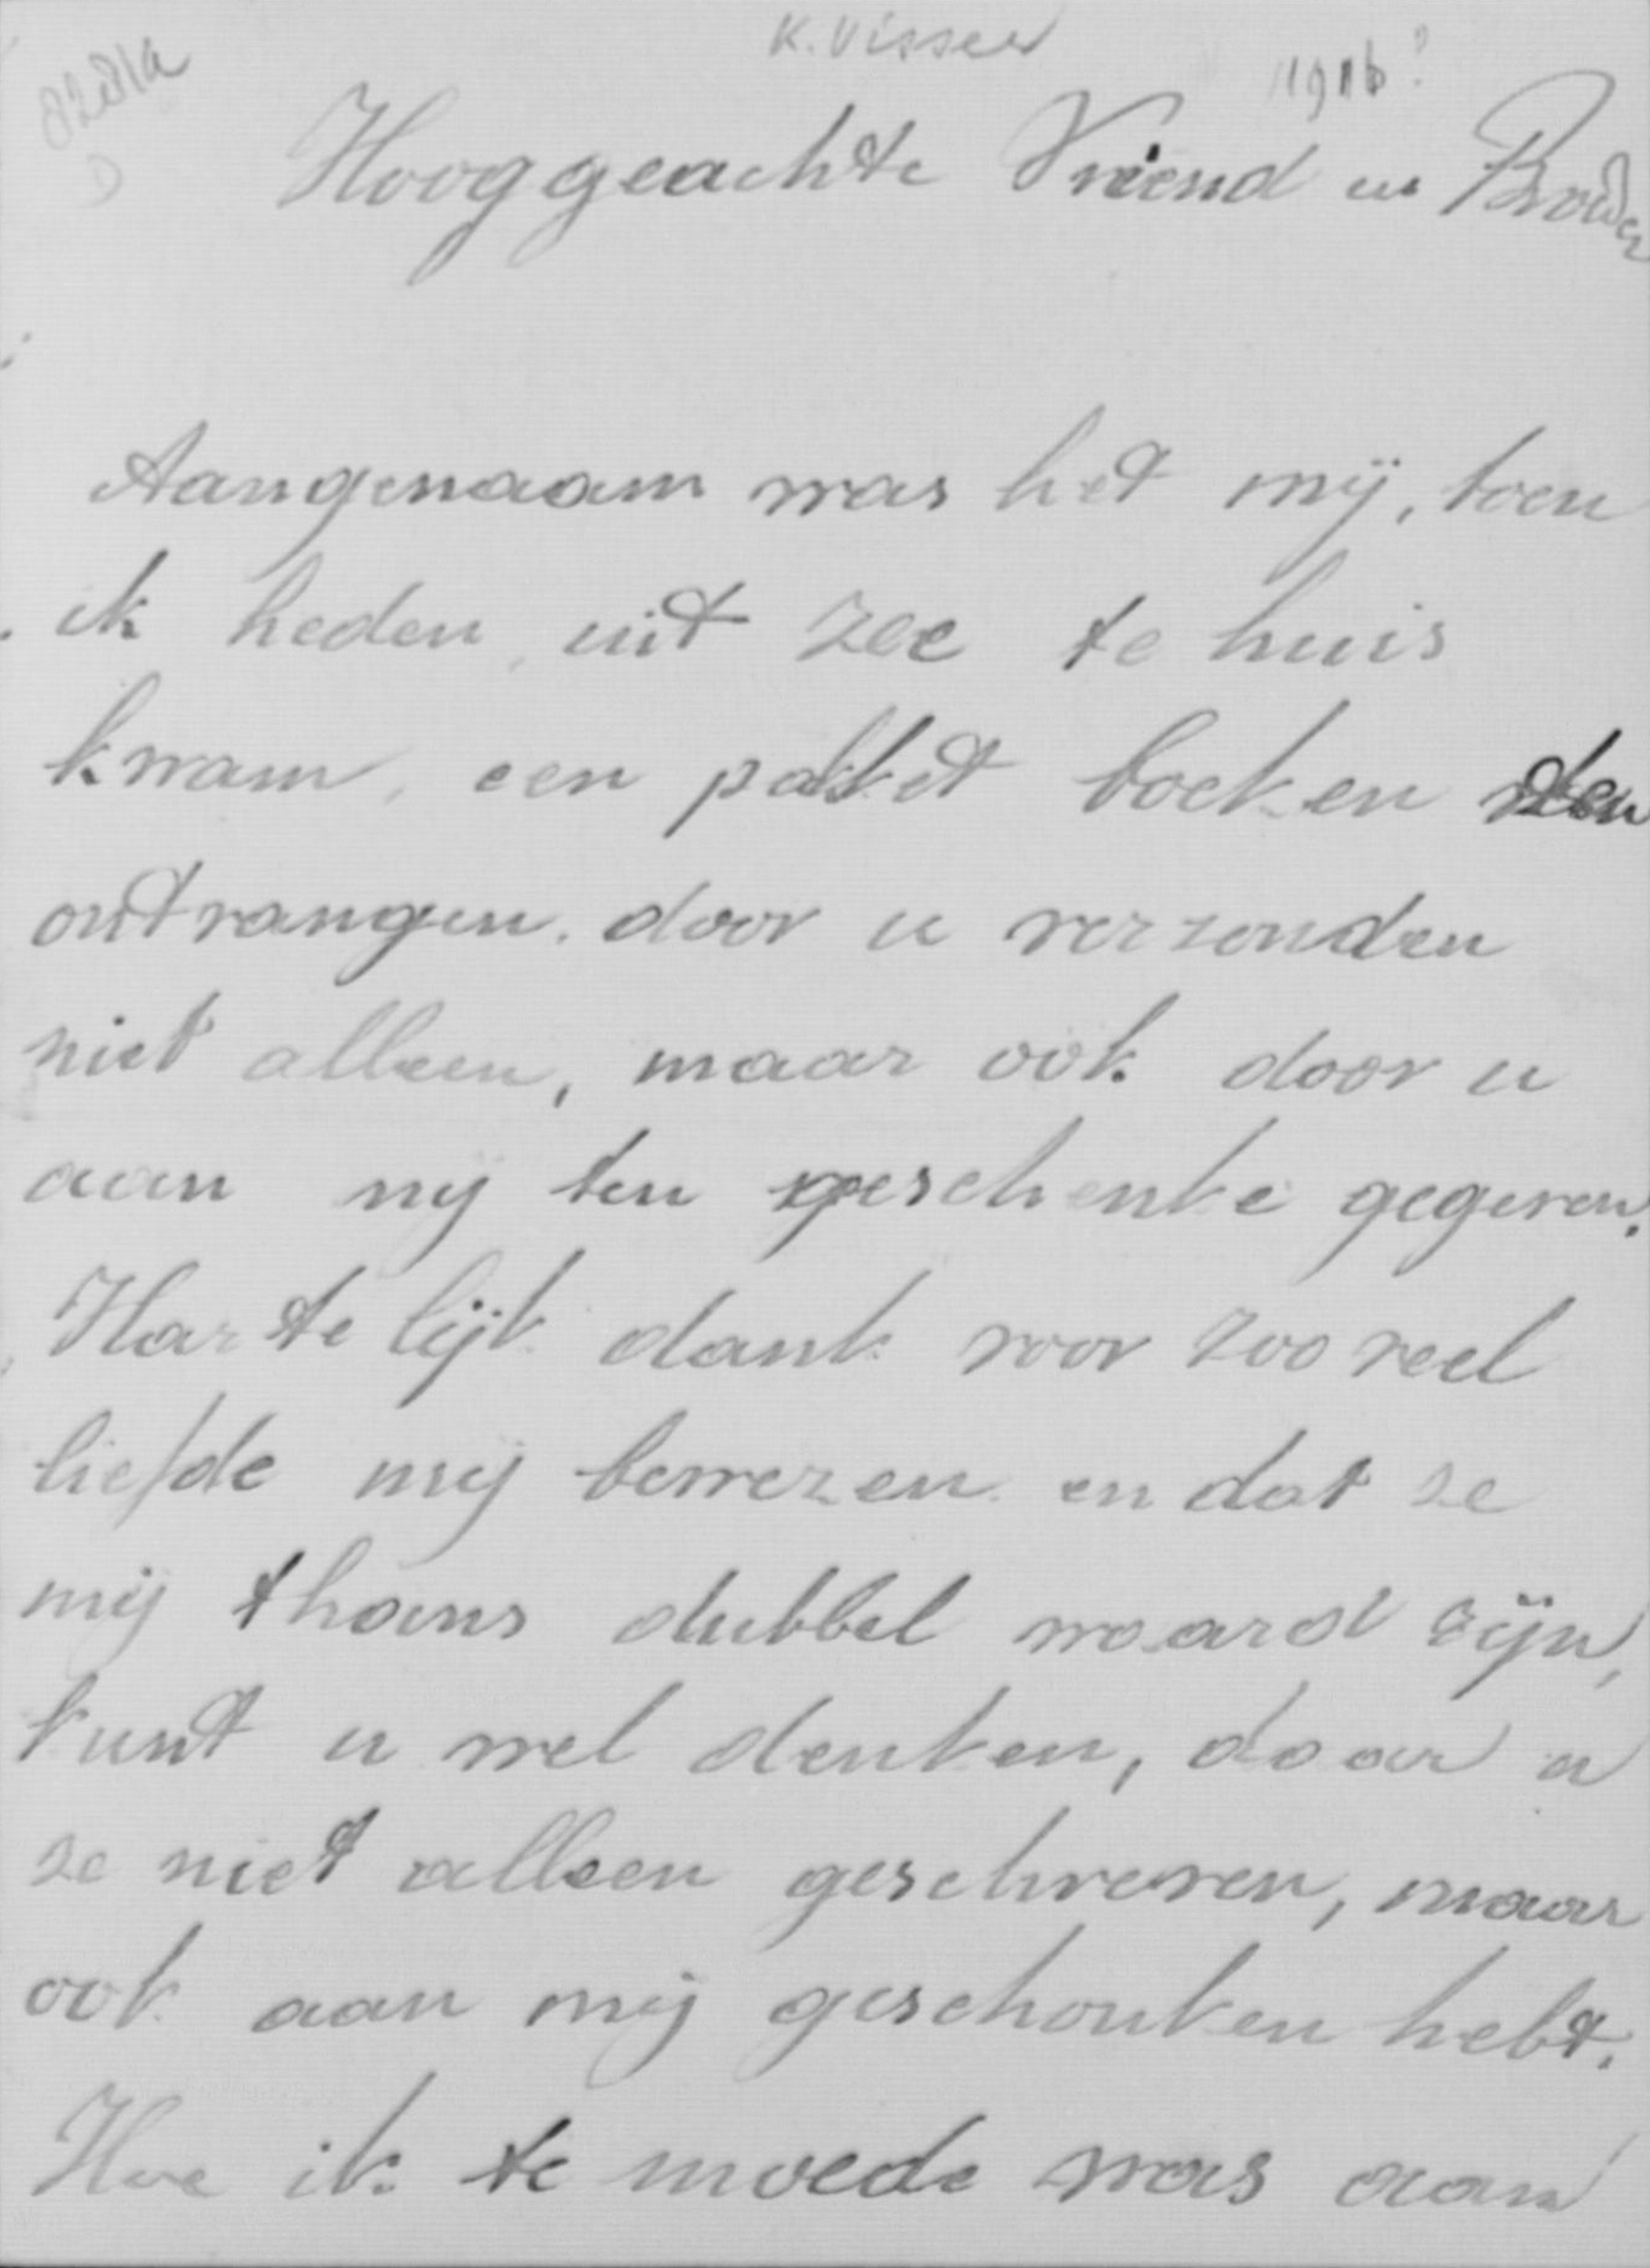 K. Visser
Hooggeachte Vriend en Broeder
Aangenaam was het mij, toen
ik heden, uit zee te huis
kwam, een pakket boeken
ontvangen. door u verzonden
niet alleen, maar ook door u
aan mij ten geschenke gegeven.
Hartelijk dank voor zooveel
liefde mij bewezen en dat ze
mij thans dubbel waard zijn,
kunt u wel denken, daar u
ze niet alleen geschreven, maar
ook aan mij geschonken hebt.
Hoe ik te moede was aan